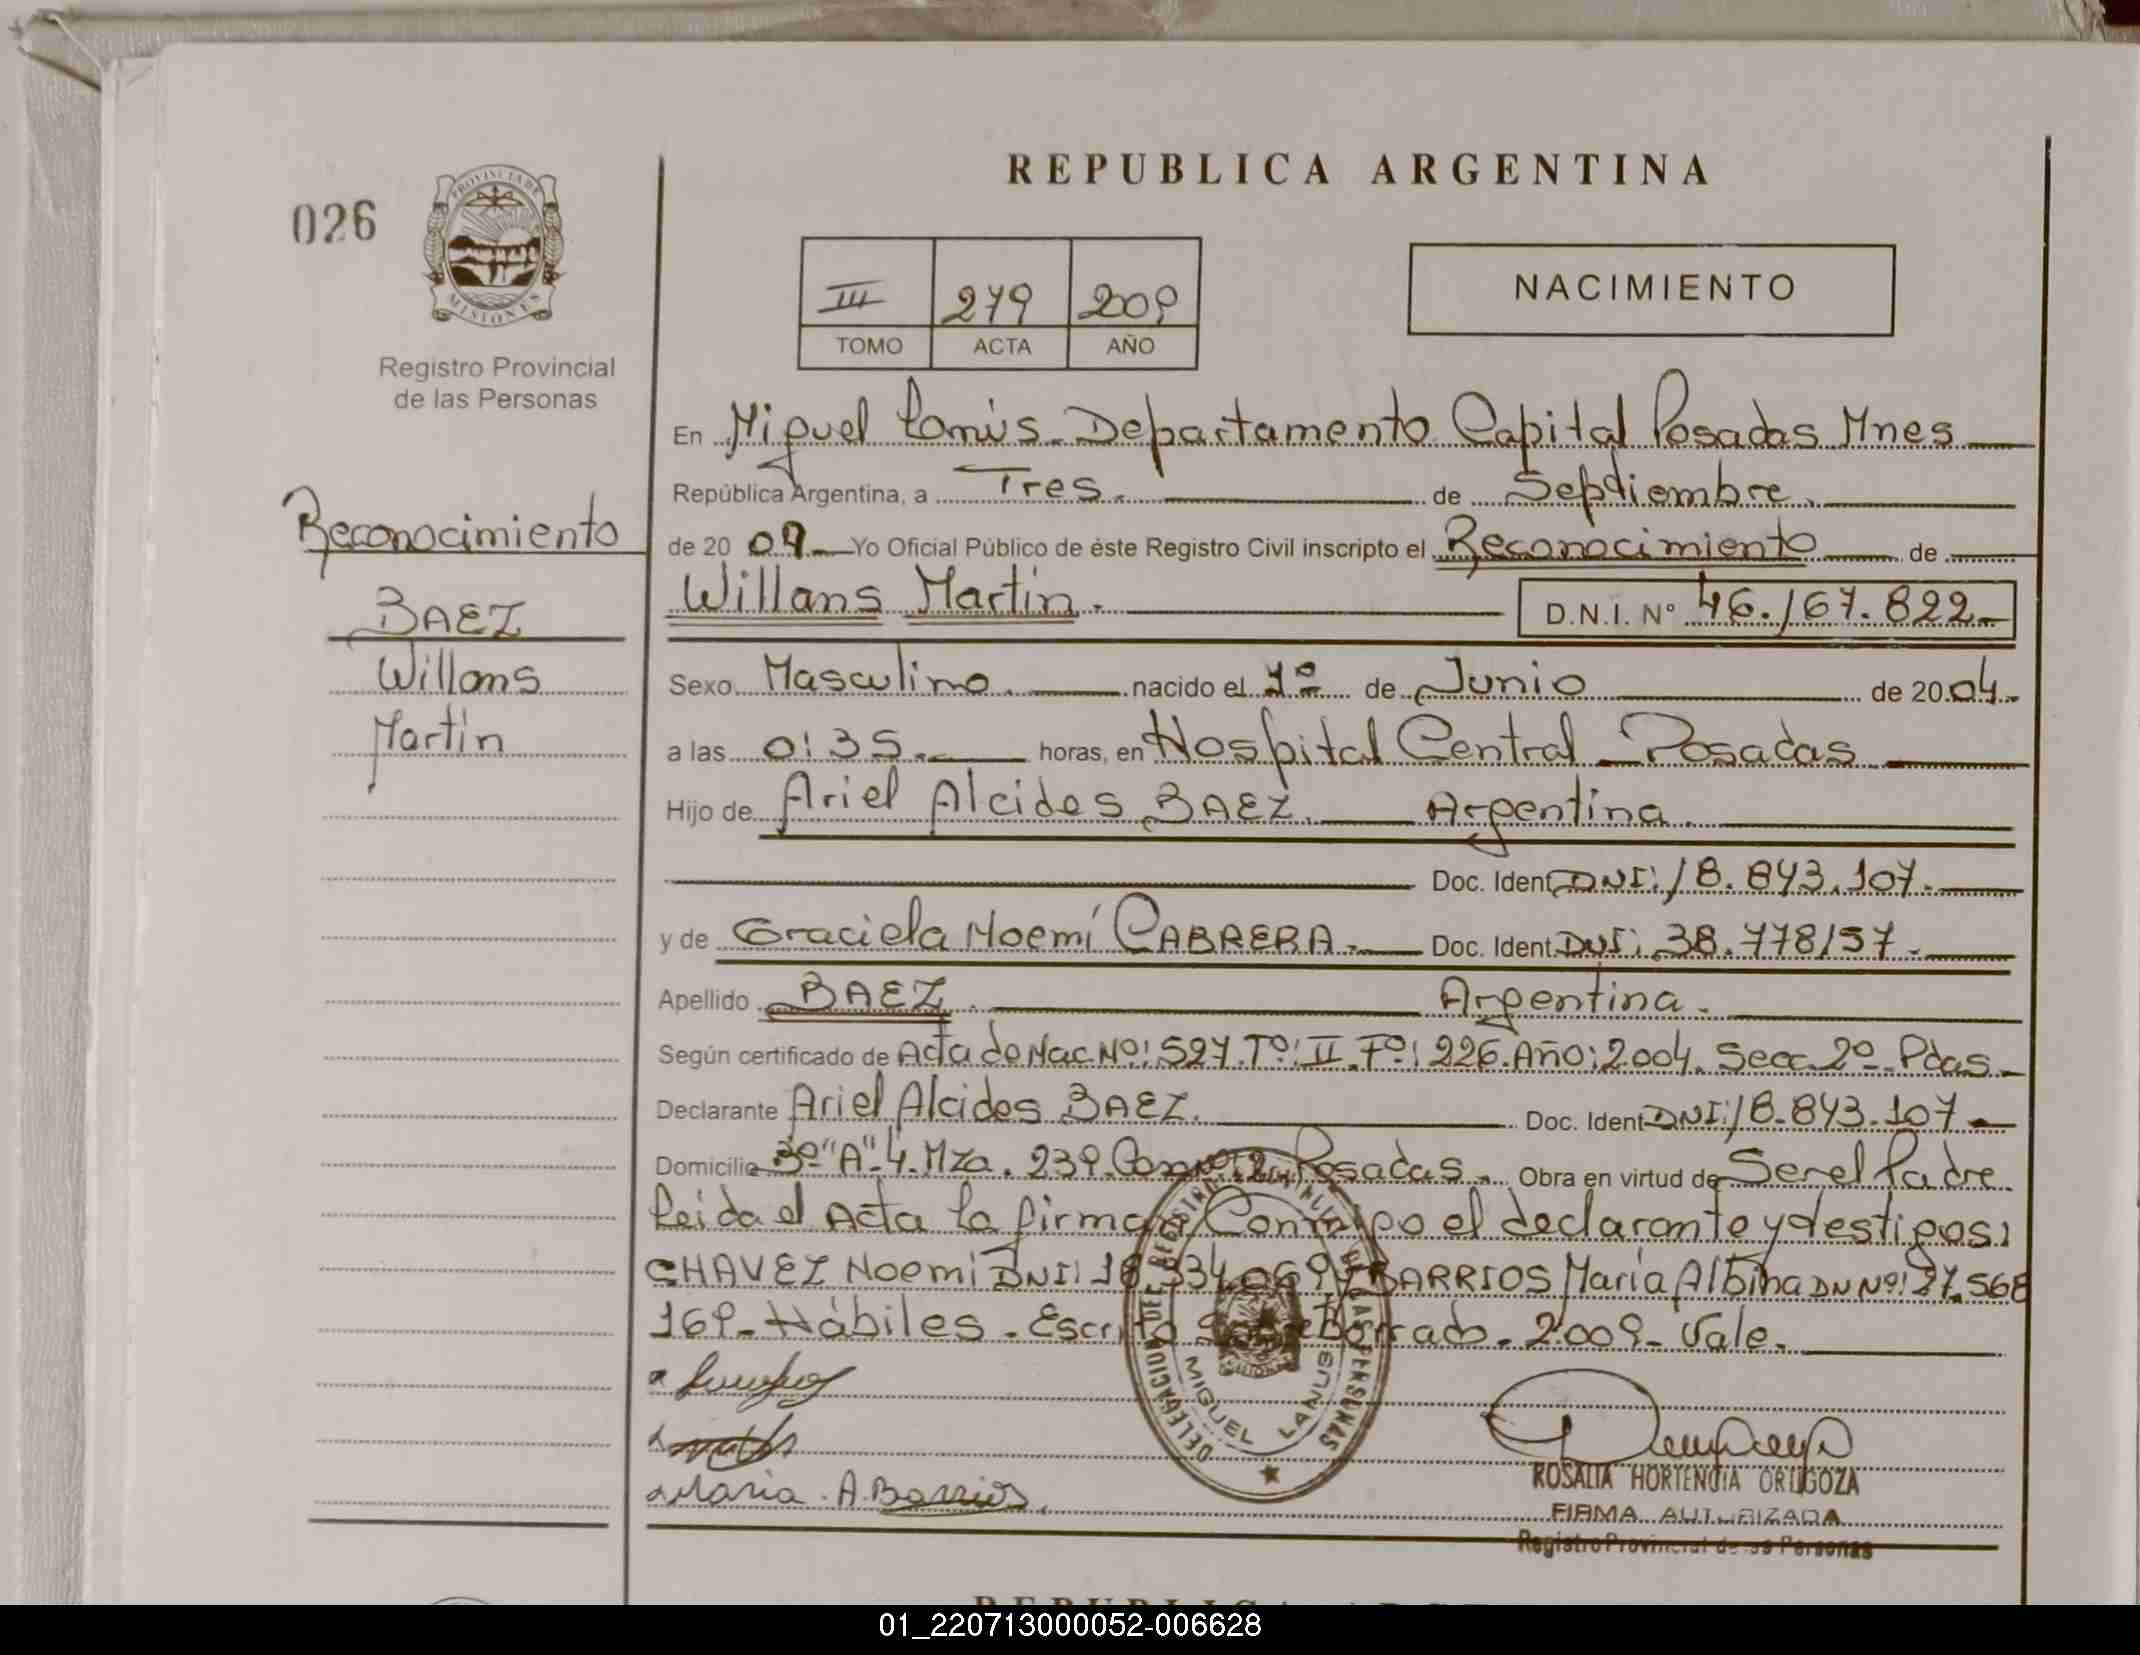 REPUBLICA ARGENTINA
026
PROVINCIA DE
MISIONES
Registro Provincial
de las Personas
III 279 2009
TOMO ACTA AÑO
NACIMIENTO
Reconocimiento
BAEZ
Willans
Martin
En Miguel Lanús Departamento Capital Posadas Mnes
República Argentina, a Tres. de Septiembre.
de 20 09 Yo Oficial Público de éste Registro Civil inscripto el Reconocimiento de
Willans Martin. D.N.I. Nº 46.167.822
Sexo Masculino. nacido el 1º de Junio de 2004
a las 0:35. horas, en Hospital Central Posadas
Hijo de Ariel Alcides BAEZ. Argentina.
Doc. Ident DNI: 18.843.107.
y de Graciela Noemí CABRERA. Doc. Ident. DNI: 38.778157.
Apellido BAEZ. Argentina.
Según certificado de Acta de Nac Nº: 527. Tº: II. Fº: 226. Año: 2004. Secc. 2º Pdas
Declarante Ariel Alcides BAEZ. Doc. Ident DNI: 18.843.107
Domicilio 3º "A" 4. Mza. 239. Posadas. Obra en virtud de Ser el Padre
Leida el Acta la firman Conmigo el declarante y testigos:
CHAVEZ Noemi DNI: BARRIOS Maria Albina DN Nº: 27.568
169. Hábiles. Escrito Sobreborrado. 2009. Vale.
DELEGACION DEL REGISTRO PROVINCIAL DE LAS PERSONAS
MIGUEL LANUS
Maria A. Barrios
ROSALIA HORTENCIA ORIGOZA
FIRMA AUTORIZADA
Registro Provincial de las Personas
01_220713000052-006628